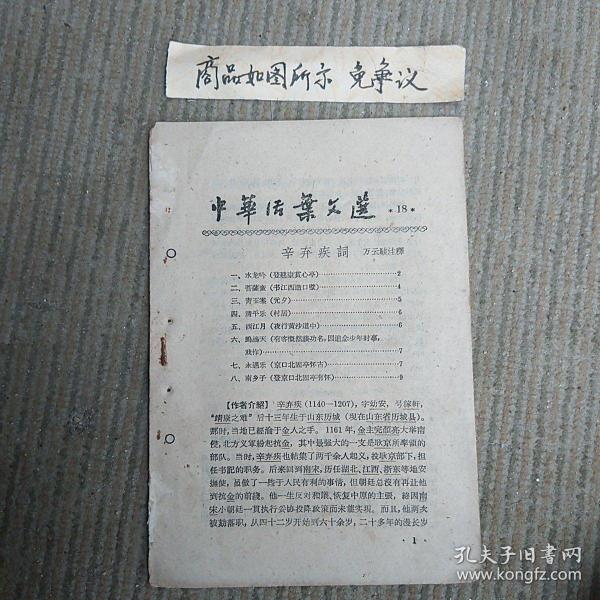 商品如图所示 免争议
中華活葉文選 *18*
辛弃疾詞 万云駿注釋
一、水龙吟（登建康賞心亭）…………2
二、菩薩蛮（书江西造口壁）…………4
三、青玉案（元夕）…………5
四、清平乐（村居）…………6
五、西江月（夜行黄沙道中）…………6
六、鷓鴣天（有客慨然談功名，因追念少年时事，
戏作）…………7
七、永遇乐（京口北固亭怀古）…………7
八、南乡子（登京口北固亭有怀）…………9
【作者介紹】 辛弃疾（1140—1207），字幼安，号稼軒，
“靖康之难”后十三年生于山东历城（现在山东省历城县）。
那时，当地已經淪于金人之手。1161年，金主完顏亮大举南
侵，北方义軍紛起抗金，其中最强大的一支是耿京所率領的
部队。当时，辛弃疾也結集了两千余人起义，投耿京部下，担
任书記的职务。后来回到南宋，历任湖北、江西、浙东等地安
撫使，虽做了一些于人民有利的事情，但朝廷总沒有再让他
到抗金的前綫。他一生反对和議、恢复中原的主張，終因南
宋小朝廷一貫执行妥协投降政策而未能实現。而且，他两次
被劾落职，从四十二岁开始到六十余岁，二十多年的漫长岁
·1·
孔夫子旧书网
www.kongfz.com